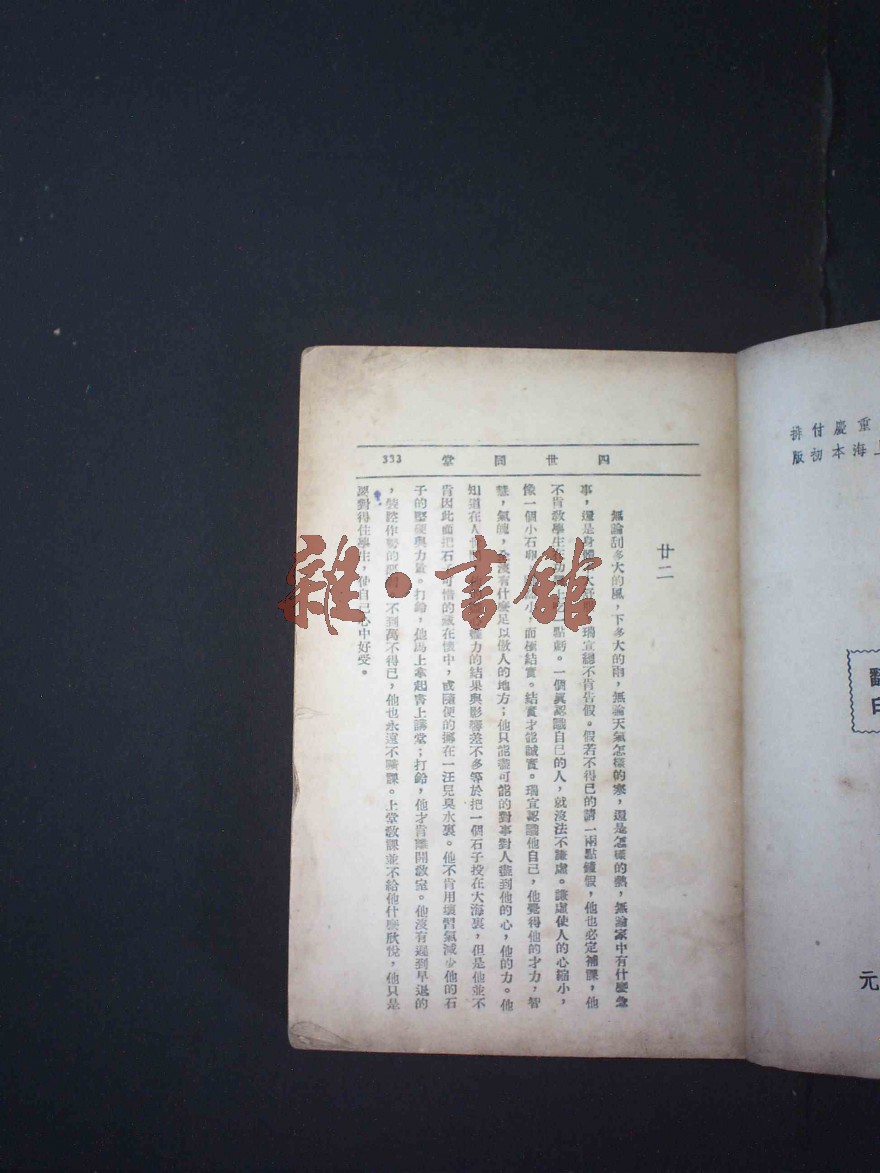 四世同堂 333
廿二
無論刮多大的風，下多大的雨，無論天氣怎樣的寒，還是怎樣的熱，無論家中有什麼急
事，還是身體 瑞宣總不肯告假。假若不得已的請一兩點鐘假，他也必定補課，他
不肯教學生在 點虧。一個眞認識自己的人，就沒法不謙虛。謙虛使人的心縮小，
像一個小石卵 小，而極結實。結實才能誠實。瑞宣認識他自己，他覺得他的才力，智
慧，氣魄， 沒有什麼足以傲人的地方；他只能盡可能的對事對人盡到他的心，他的力。他
知道在人 力的結果與影響差不多等於把一個石子投在大海裏，但是他並不
肯因此而把石 可惜的藏在懷中，或隨便的擲在一汪兒臭水裏。他不肯用壞習氣減少他的石
子的堅硬與力量。打鈴，他馬上拿起書上講堂；打鈴，他才肯離開教室。他沒有遲到早退的
，裝腔作勢的 不到萬不得已，他也永遠不曠課。上堂教課並不給他什麼欣悅，他只是
要對得住學生，使自己心中好受。
雜·書館
重慶付排
上海本初版
翻
印
元